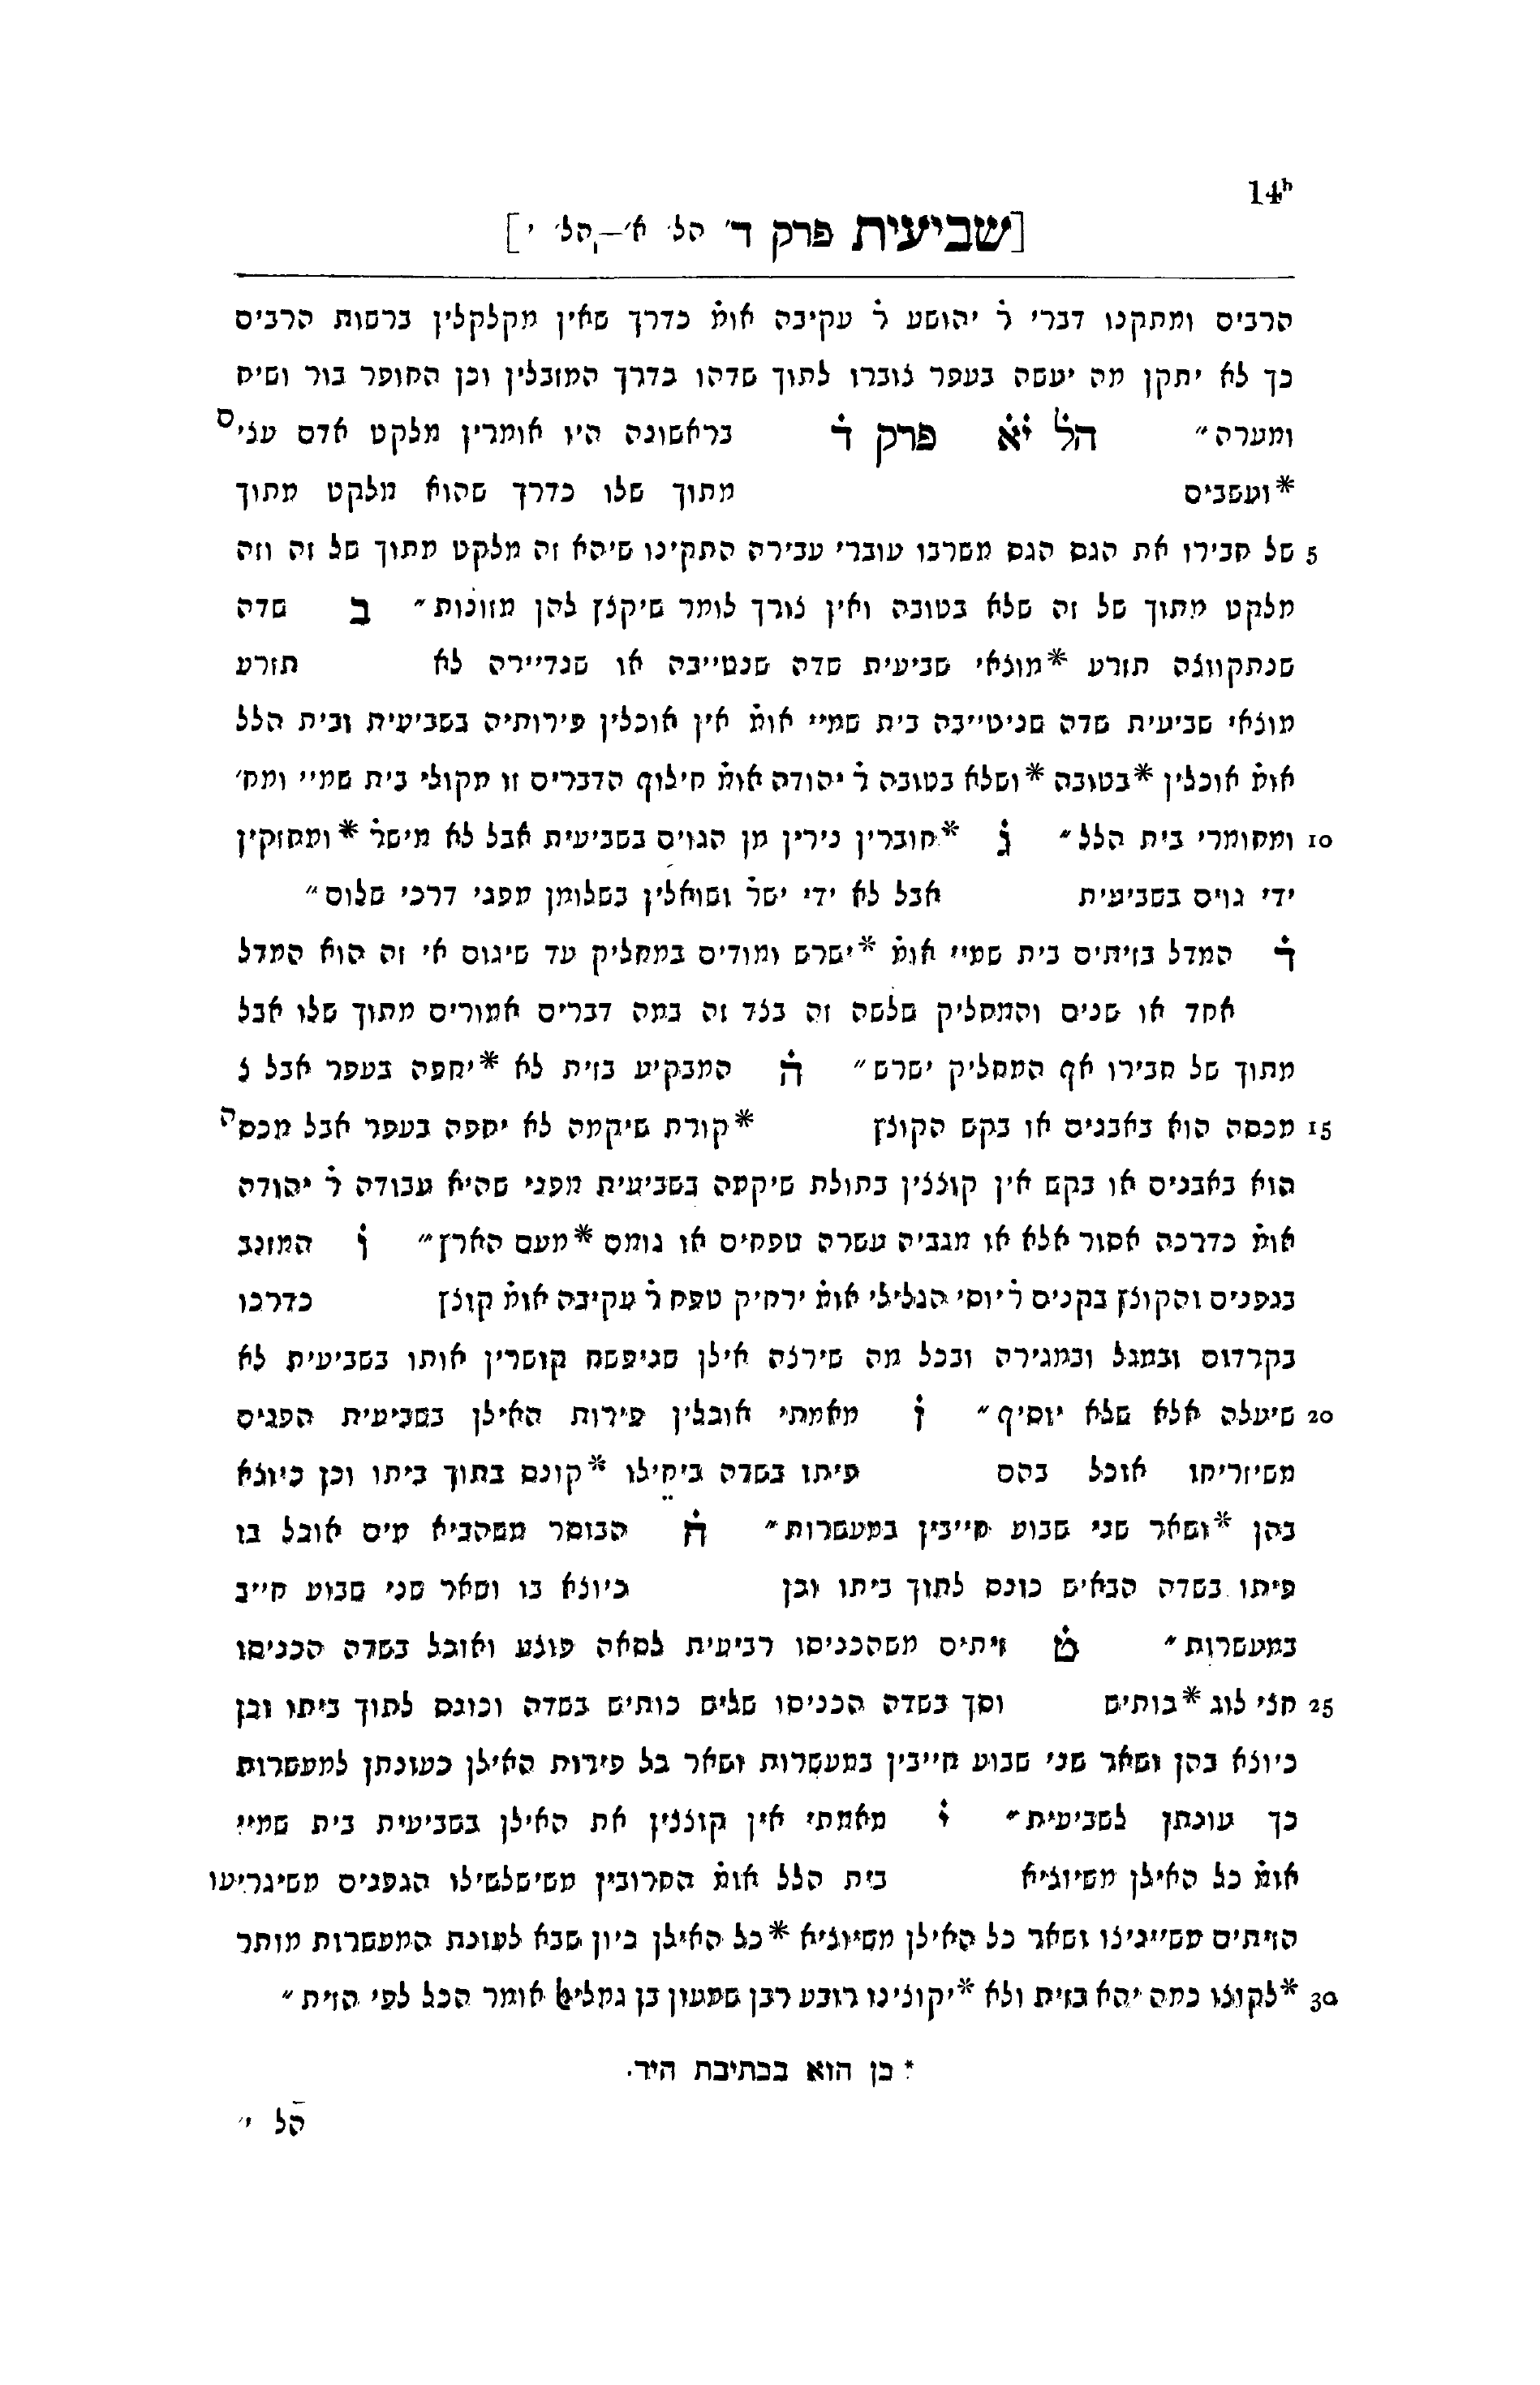 14ᵇ
[שביעית פרק ד׳ הל׳ א׳—הל׳ י׳]
הרבים ומתקנו דברי ר׳ יהושע ר׳ עקיבה אומ׳ כדרך שאין מקלקלין ברשות הרבים
כך לא יתקן מה יעשה בעפר צוברו לתוך שדהו כדרך המזבלין וכן החופר בור ושיח
ומערה״ הל׳ יא׳ פרק ד׳ בראשונה היו אומרין מלקט אדם עצים
*ועשבים מתוך שלו כדרך שהוא מלקט מתוך
5 של חבירו את הגס הגס משרבו עוברי עבירה התקינו שיהא זה מלקט מתוך של זה וזה
מלקט מתוך של זה שלא בטובה ואין צורך לומר שיקצץ להן מזונות״ ב שדה
שנתקווצה תזרע *מוצאי שביעית שדה שנטייבה או שנדיירה לא תזרע
מוצאי שביעית שדה שניטייבה בית שמיי אומ׳ אין אוכלין פירותיה בשביעית ובית הלל
אומ׳ אוכלין *בטובה *ושלא בטובה ר׳ יהודה אומ׳ חילוף הדברים זו מקולי בית שמיי ומח׳
10 ומחומרי בית הלל״ ג׳ *חוברין נירין מן הגוים בשביעית אבל לא מישר׳ *ומחזקין
ידי גוים בשביעית אבל לא ידי ישר׳ ושואלין בשלומן מפני דרכי שלום״
ד׳ המדל בזיתים בית שמיי אומ׳ *ישרש ומודים במחליק עד שיגום אי זה הוא המדל
אחד או שנים והמחליק שלשה זה בצד זה במה דברים אמורים מתוך שלו אבל
מתוך של חבירו אף המחליק ישרש״ ה׳ המבקיע בזית לא *יחפה בעפר אבל צ
15 מכסה הוא באבנים או בקש הקוצץ *קורת שיקמה לא יחפה בעפר אבל מכסה
הוא באבנים או בקש אין קוצצין בתולת שיקמה בשביעית מפני שהיא עבודה ר׳ יהודה
אומ׳ כדרכה אסור אלא או מגביה עשרה טפחים או גומם *מעם הארץ״ ו׳ המזנב
בגפנים והקוצץ בקנים ר׳ יוסי הגלילי אומ׳ ירחיק טפח ר׳ עקיבה אומ׳ קוצץ כדרכו
בקרדום ובמגל ובמגירה ובכל מה שירצה אילן שניפשח קושרין אותו בשביעית לא
20 שיעלה אלא שלא יוסיף״ ז׳ מאמתי אוכלין פירות האילן בשביעית הפגים
משיזריחו אוכל בהם פיתו בשדה ביחילו *קונם בתוך ביתו וכן כיוצא
בהן *ושאר שני שבוע חייבין במעשרות״ ח׳ הבוסר משהביא מים אוכל בו
פיתו בשדה הבאיש כונס לתוך ביתו וכן כיוצא בו ושאר שני שבוע חייב
במעשרות״ ט׳ זיתים משהכניסו רביעית לסאה פוצע ואוכל בשדה הכניסו
25 חצי לוג *כותיש וסך בשדה הכניסו שליש כותיש בשדה וכונס לתוך ביתו וכן
כיוצא בהן ושאר שני שבוע חייבין במעשרות ושאר כל פירות האילן כעונתן למעשרות
כך עונתן לשביעית״ י׳ מאמתי אין קוצצין את האילן בשביעית בית שמיי
אומ׳ כל האילן משיוציא בית הלל אומ׳ החרובין משישלשילו הגפנים משיגריעו
הזיתים משייניצו ושאר כל האילן משיוציא *כל האילן כיון שבא לעונת המעשרות מותר
30 *לקוצצו כמה יהא בזית ולא *יקוצינו רובע רבן שמעון בן גמליא׳ אומר הכל לפי הזית״
* כן הוא בכתיבת היד.
הל׳ י׳